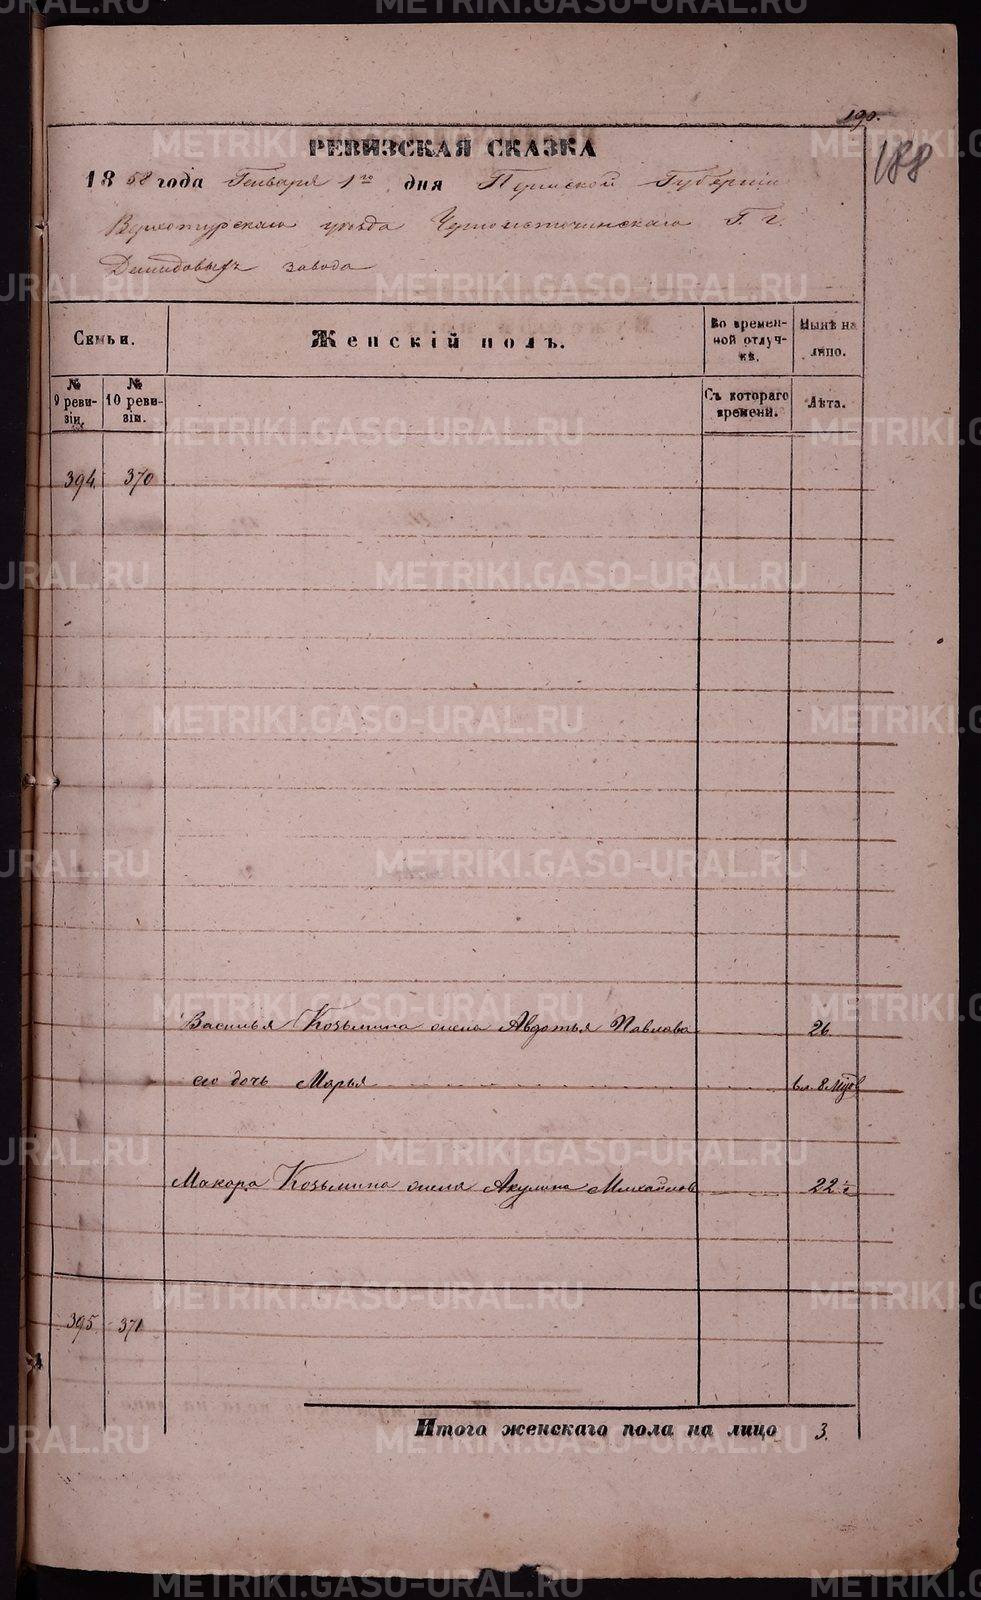 190.
188
РЕВИЗСКАЯ СКАЗКА
1858 года Генваря 1го дня Пермской Губернии
Верхотурскаго уезда Черноисточинскаго Г. г.
Демидовыхъ завода
Семьи.
Женскій полъ.
Во времен-
ной отлуч-
кѣ.
Нынѣ на
лицо.
№
9 реви-
зіи.
№
10 реви-
зіи.
Съ котораго
времени.
Лѣта.
394. 370
Василья Козьмина жена Авдотья Павлова 26
его дочь Марья
Макара Козьмина жена Акулина Михайлов 22
395. 371
Итого женскаго пола на лицо 3.
METRIKI.GASO-URAL.RU